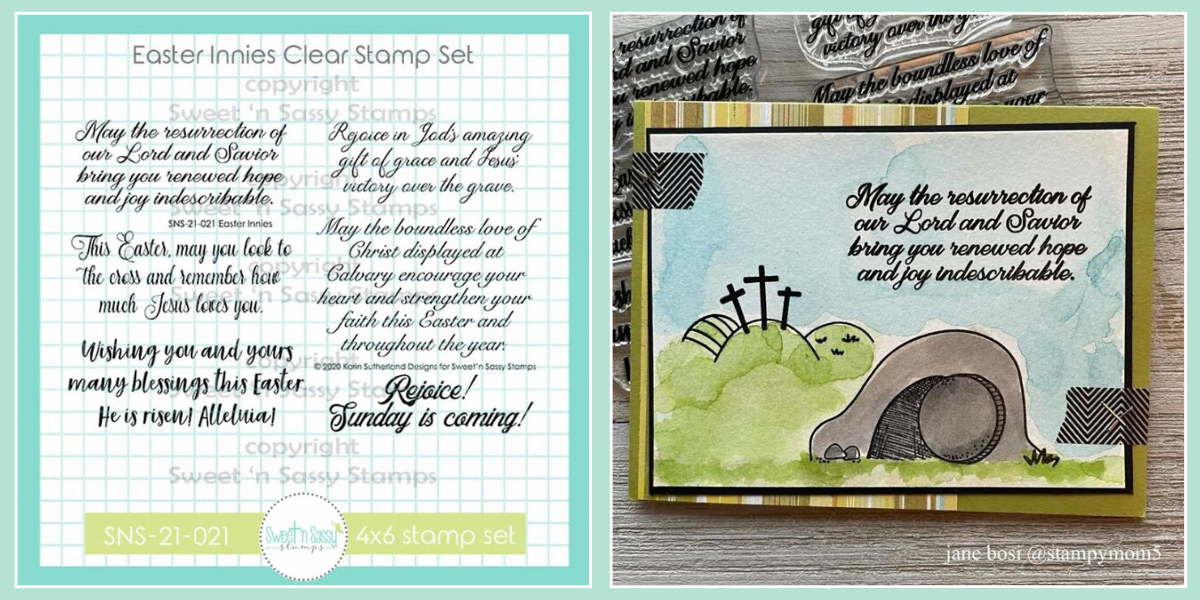 Easter Innies Clear Stamp Set
copyright
Sweet 'n Sassy Stamps
May the resurrection of
our Lord and Savior
bring you renewed hope
and joy indescribable.
SNS-21-021 Easter Innies
This Easter, may you look to
the cross and remember how
much Jesus loves you.
Wishing you and yours
many blessings this Easter.
He is risen! Alleluia!
Rejoice in God's amazing
gift of grace and Jesus'
victory over the grave.
May the boundless love of
Christ displayed at
Calvary encourage your
heart and strengthen your
faith this Easter and
throughout the year.
© 2020 Karin Sutherland Designs for Sweet'n Sassy Stamps
Rejoice!
Sunday is coming!
copyright
Sweet 'n Sassy Stamps
copyright
Sweet 'n Sassy Stamps
copyright
Sweet 'n Sassy Stamps
copyright
Sweet 'n Sassy Stamps
SNS-21-021
Sweet'n Sassy
stamps
4x6 stamp set
resurrection of
rd and Savior
you renewed hope
indescribable.
gift of
victory over the grave.
May the boundless love of
displayed at
your
May the resurrection of
our Lord and Savior
bring you renewed hope
and joy indescribable.
jane bosi @stampymom5